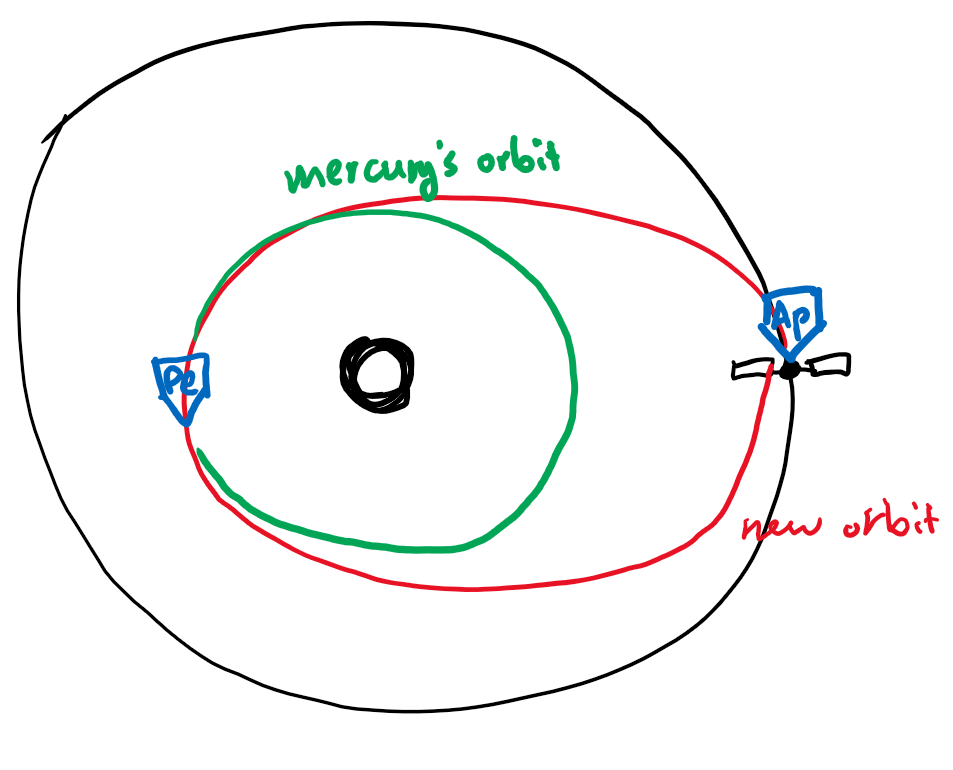 mercury's orbit
Ap
Pe
new orbit